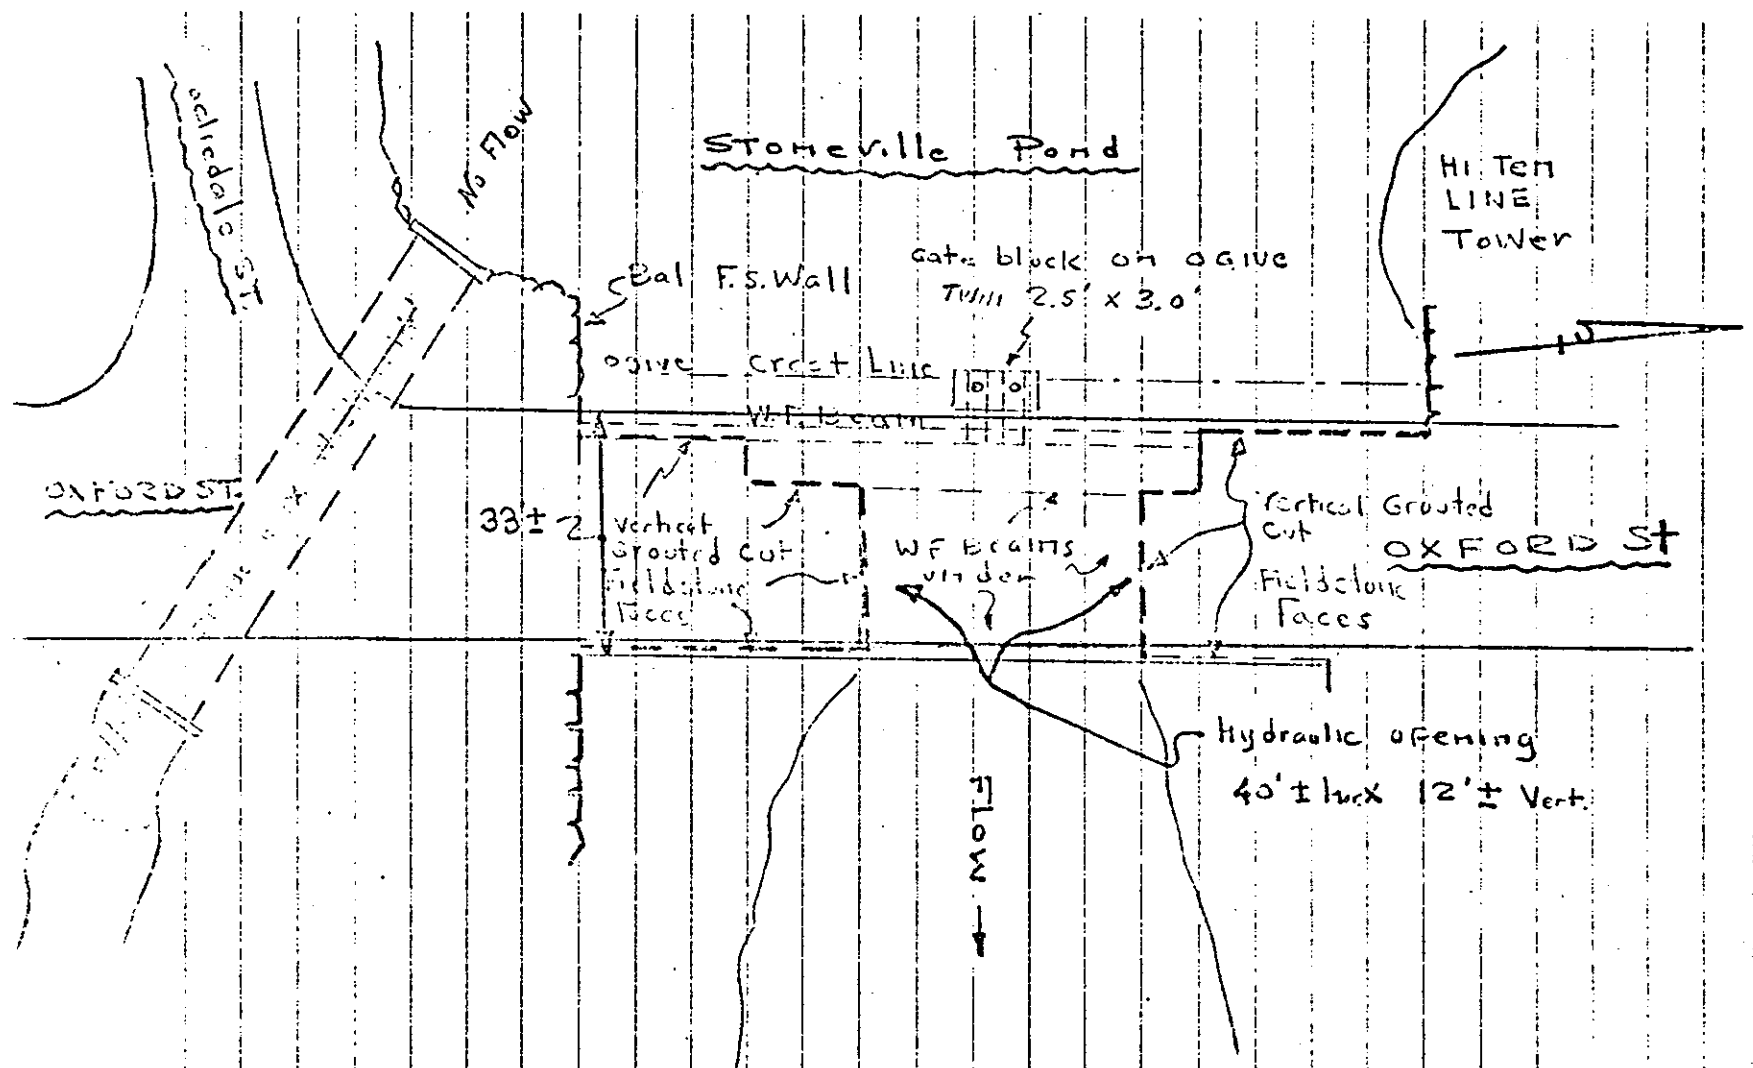 ST.
No Flow
Stoneville Pond
Hi Ten
LINE
Tower
Gate block on ogive
Twin 2.5' x 3.0'
Bal F.S. Wall
N
ogive Crest Line
W.F. Beam
OXFORD ST.
33±
Vertical
Grouted Cut
Fieldstone
Faces
WF Beams
under
Vertical Grouted
Cut
Fieldstone
Faces
OXFORD St
Hydraulic opening
40'± X 12'± Vert.
FLOW